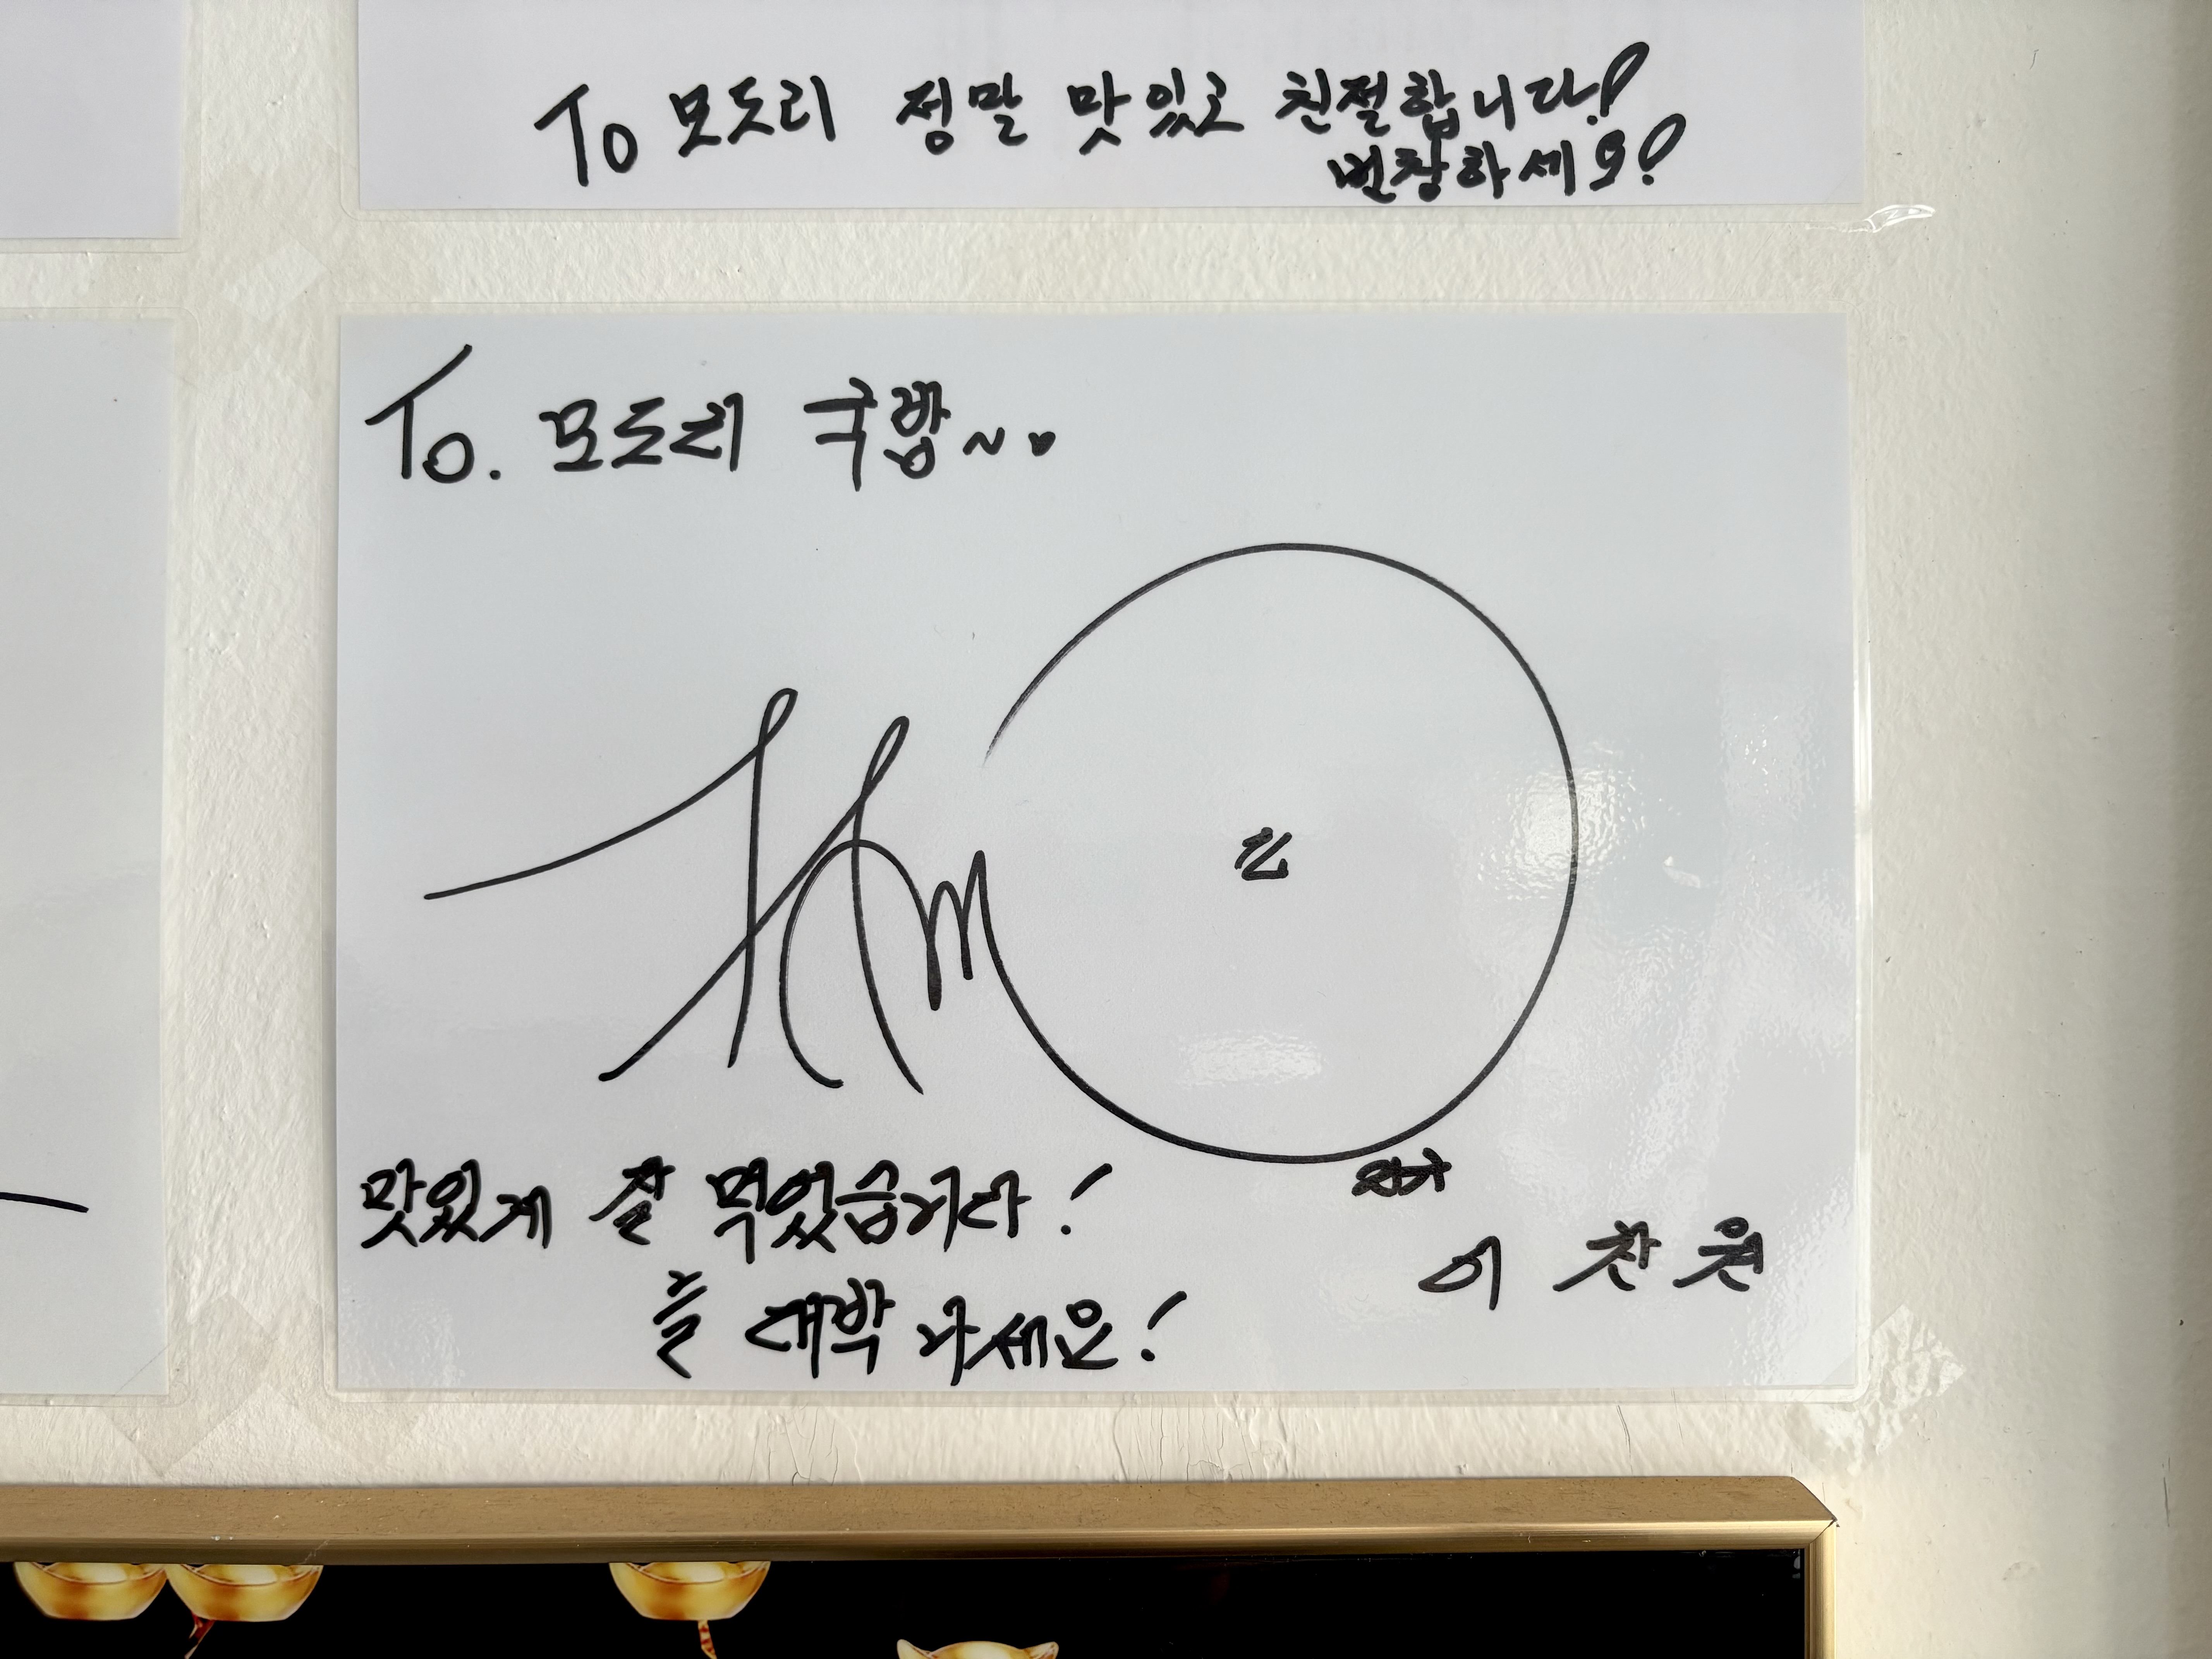 To 모도리 정말 맛있고 친절합니다!
번창하세요!
To. 모도리 국밥~
맛있게 잘 먹었습니다!
늘 대박 나세요!
이찬원